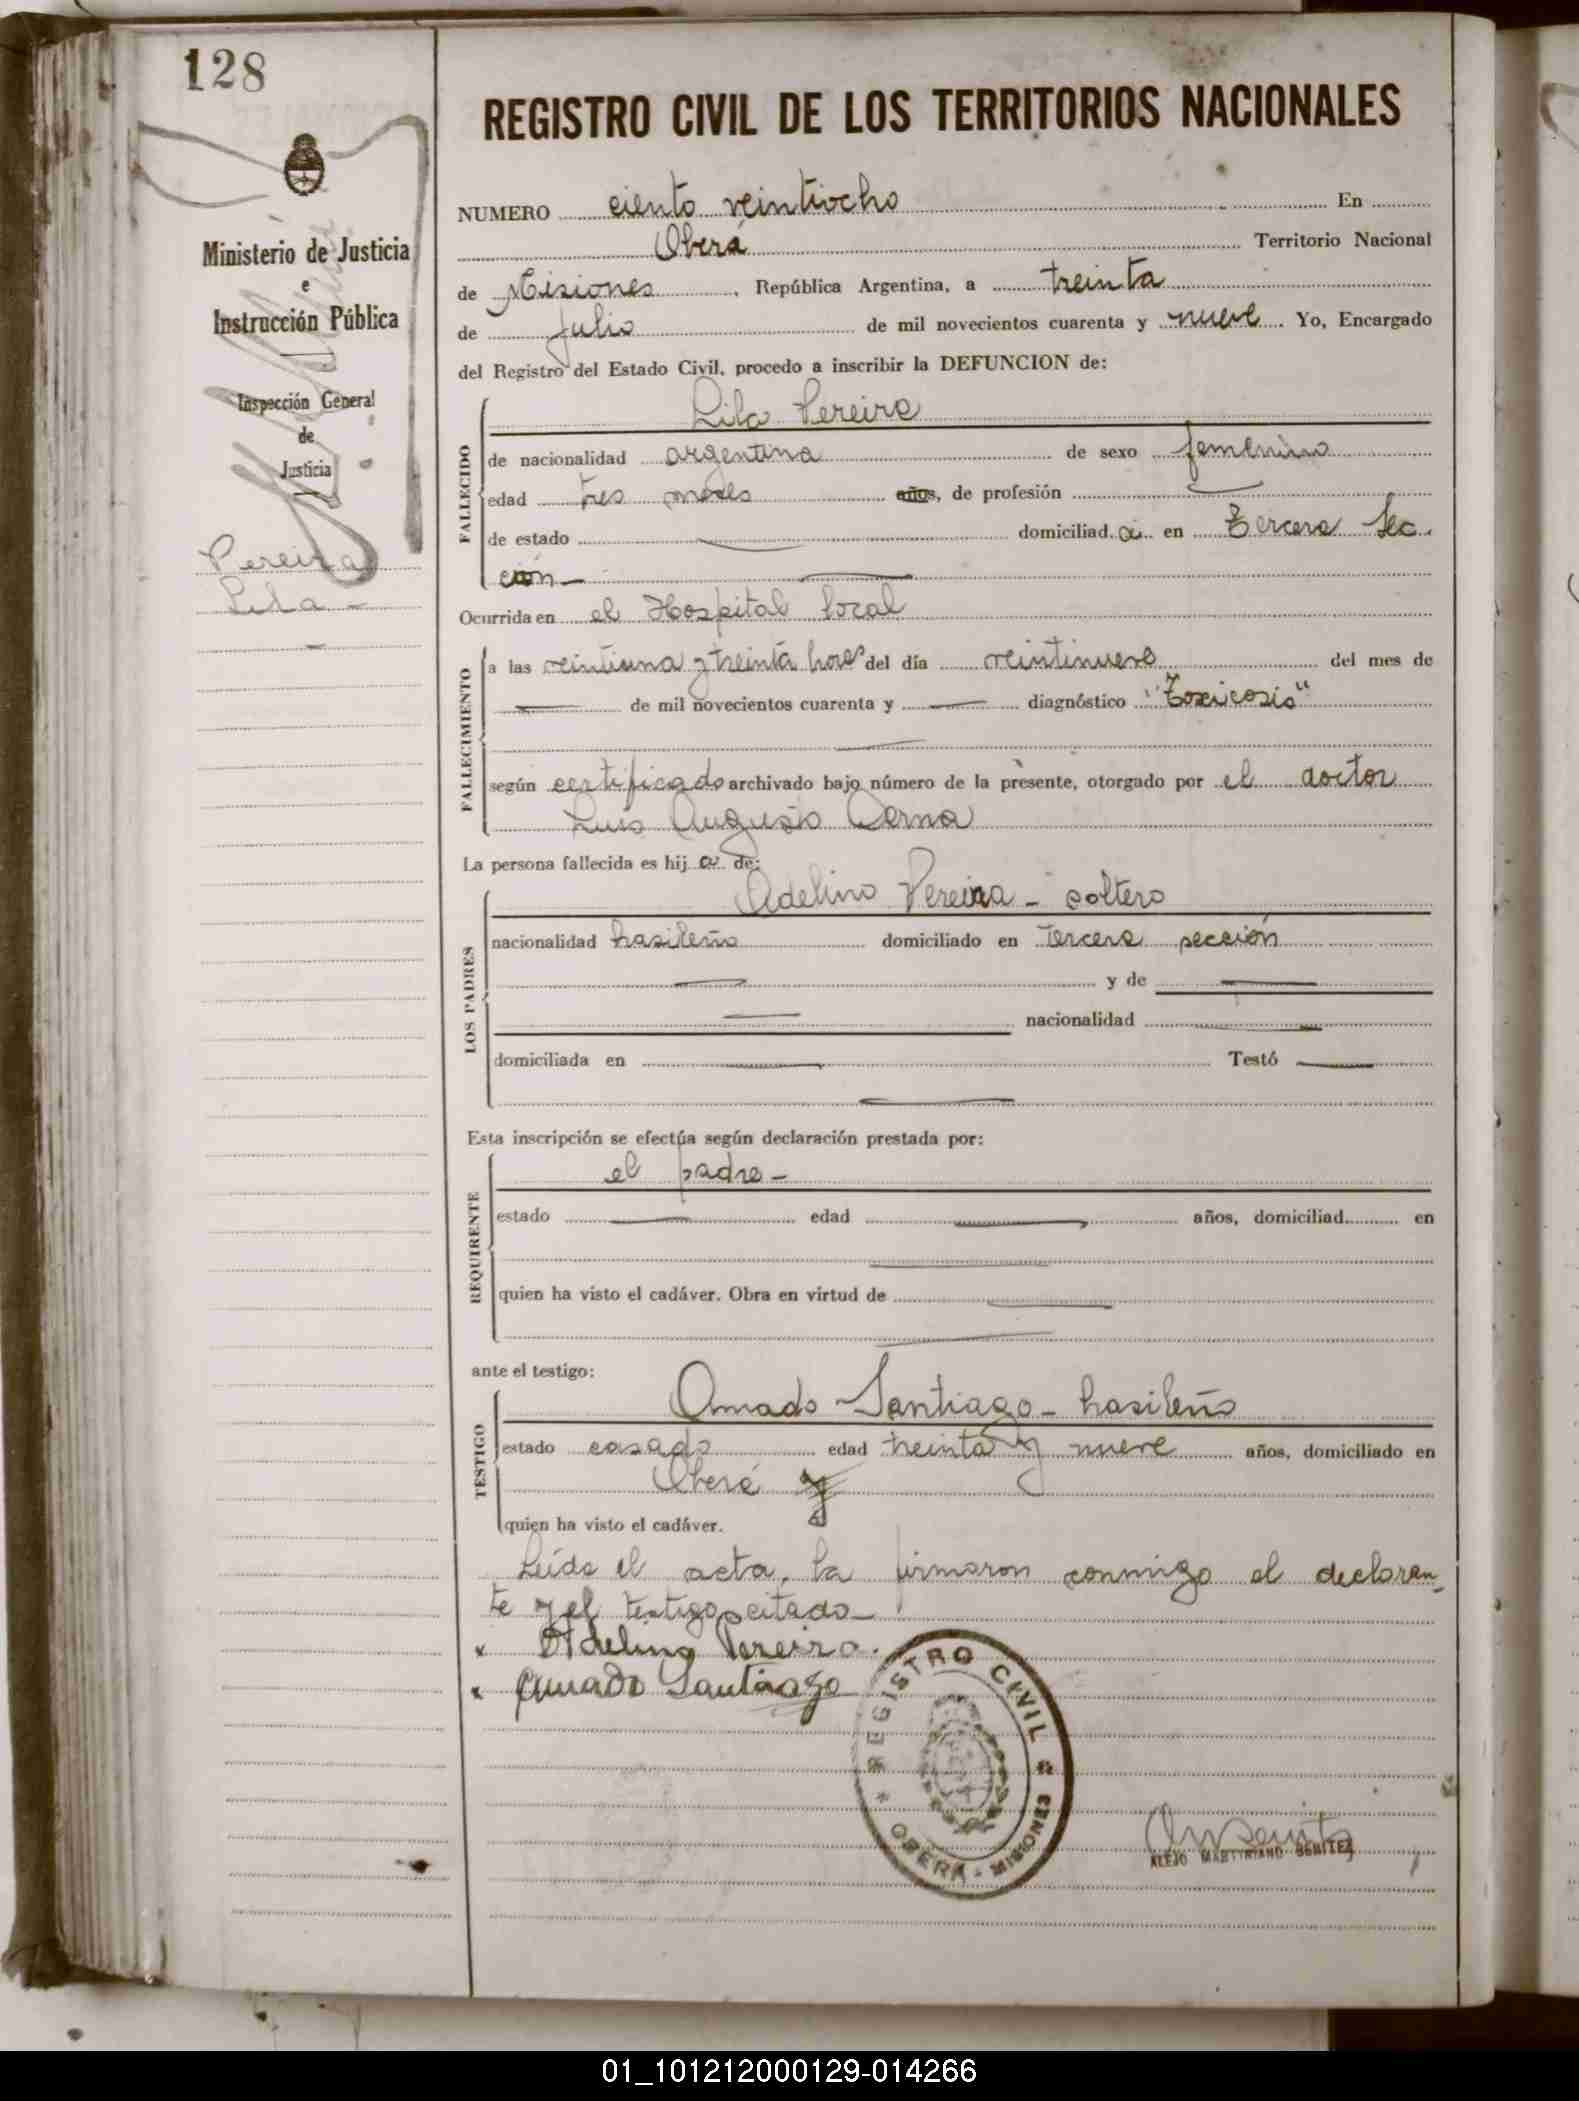 128
REGISTRO CIVIL DE LOS TERRITORIOS NACIONALES
Ministerio de Justicia
e
Instrucción Pública
Inspección General
de
Justicia
Pereira
Lila -
NUMERO ciento veintiocho En
Oberá Territorio Nacional
de Misiones, República Argentina, a treinta
de Julio de mil novecientos cuarenta y nueve. Yo, Encargado
del Registro del Estado Civil, procedo a inscribir la DEFUNCION de:
FALLECIDO
Lila Pereira
de nacionalidad argentina de sexo femenino
edad tres meses años, de profesión
de estado domiciliad.a en Tercera Sec.
ción -
Ocurrida en el Hospital local
FALLECIMIENTO
a las veintiuna y treinta horas del día veintinueve del mes de
de mil novecientos cuarenta y diagnóstico "Toxicosis"
según certificado archivado bajo número de la presente, otorgado por el doctor
Luis Augusto Derna
La persona fallecida es hij a de:
LOS PADRES
Adelino Pereira - soltero
nacionalidad brasileño domiciliado en tercera sección
y de
nacionalidad
domiciliada en Testó
Esta inscripción se efectúa según declaración prestada por:
REQUIRENTE
el padre -
estado edad años, domiciliad en
quien ha visto el cadáver. Obra en virtud de
ante el testigo:
TESTIGO
Amado Santiago - brasileño
estado casado edad treinta y nueve años, domiciliado en
Oberá y
quien ha visto el cadáver.
Leída el acta, la firmaron conmigo el declaran-
te y el testigo citado -
Adelino Pereira.
Amado Santiago
REGISTRO CIVIL
OBERA - MISIONES
ALEJO MARTINIANO BENITEZ
01_101212000129-014266